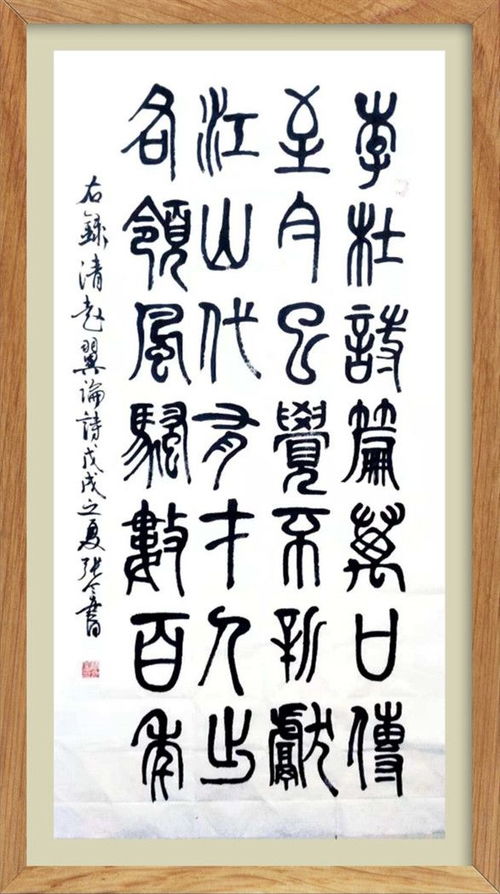 李杜詩篇萬口傳
至今已覺不新獻
江山代有才人出
各領風騷數百年
右錄清趙翼論詩戊戌之夏張書